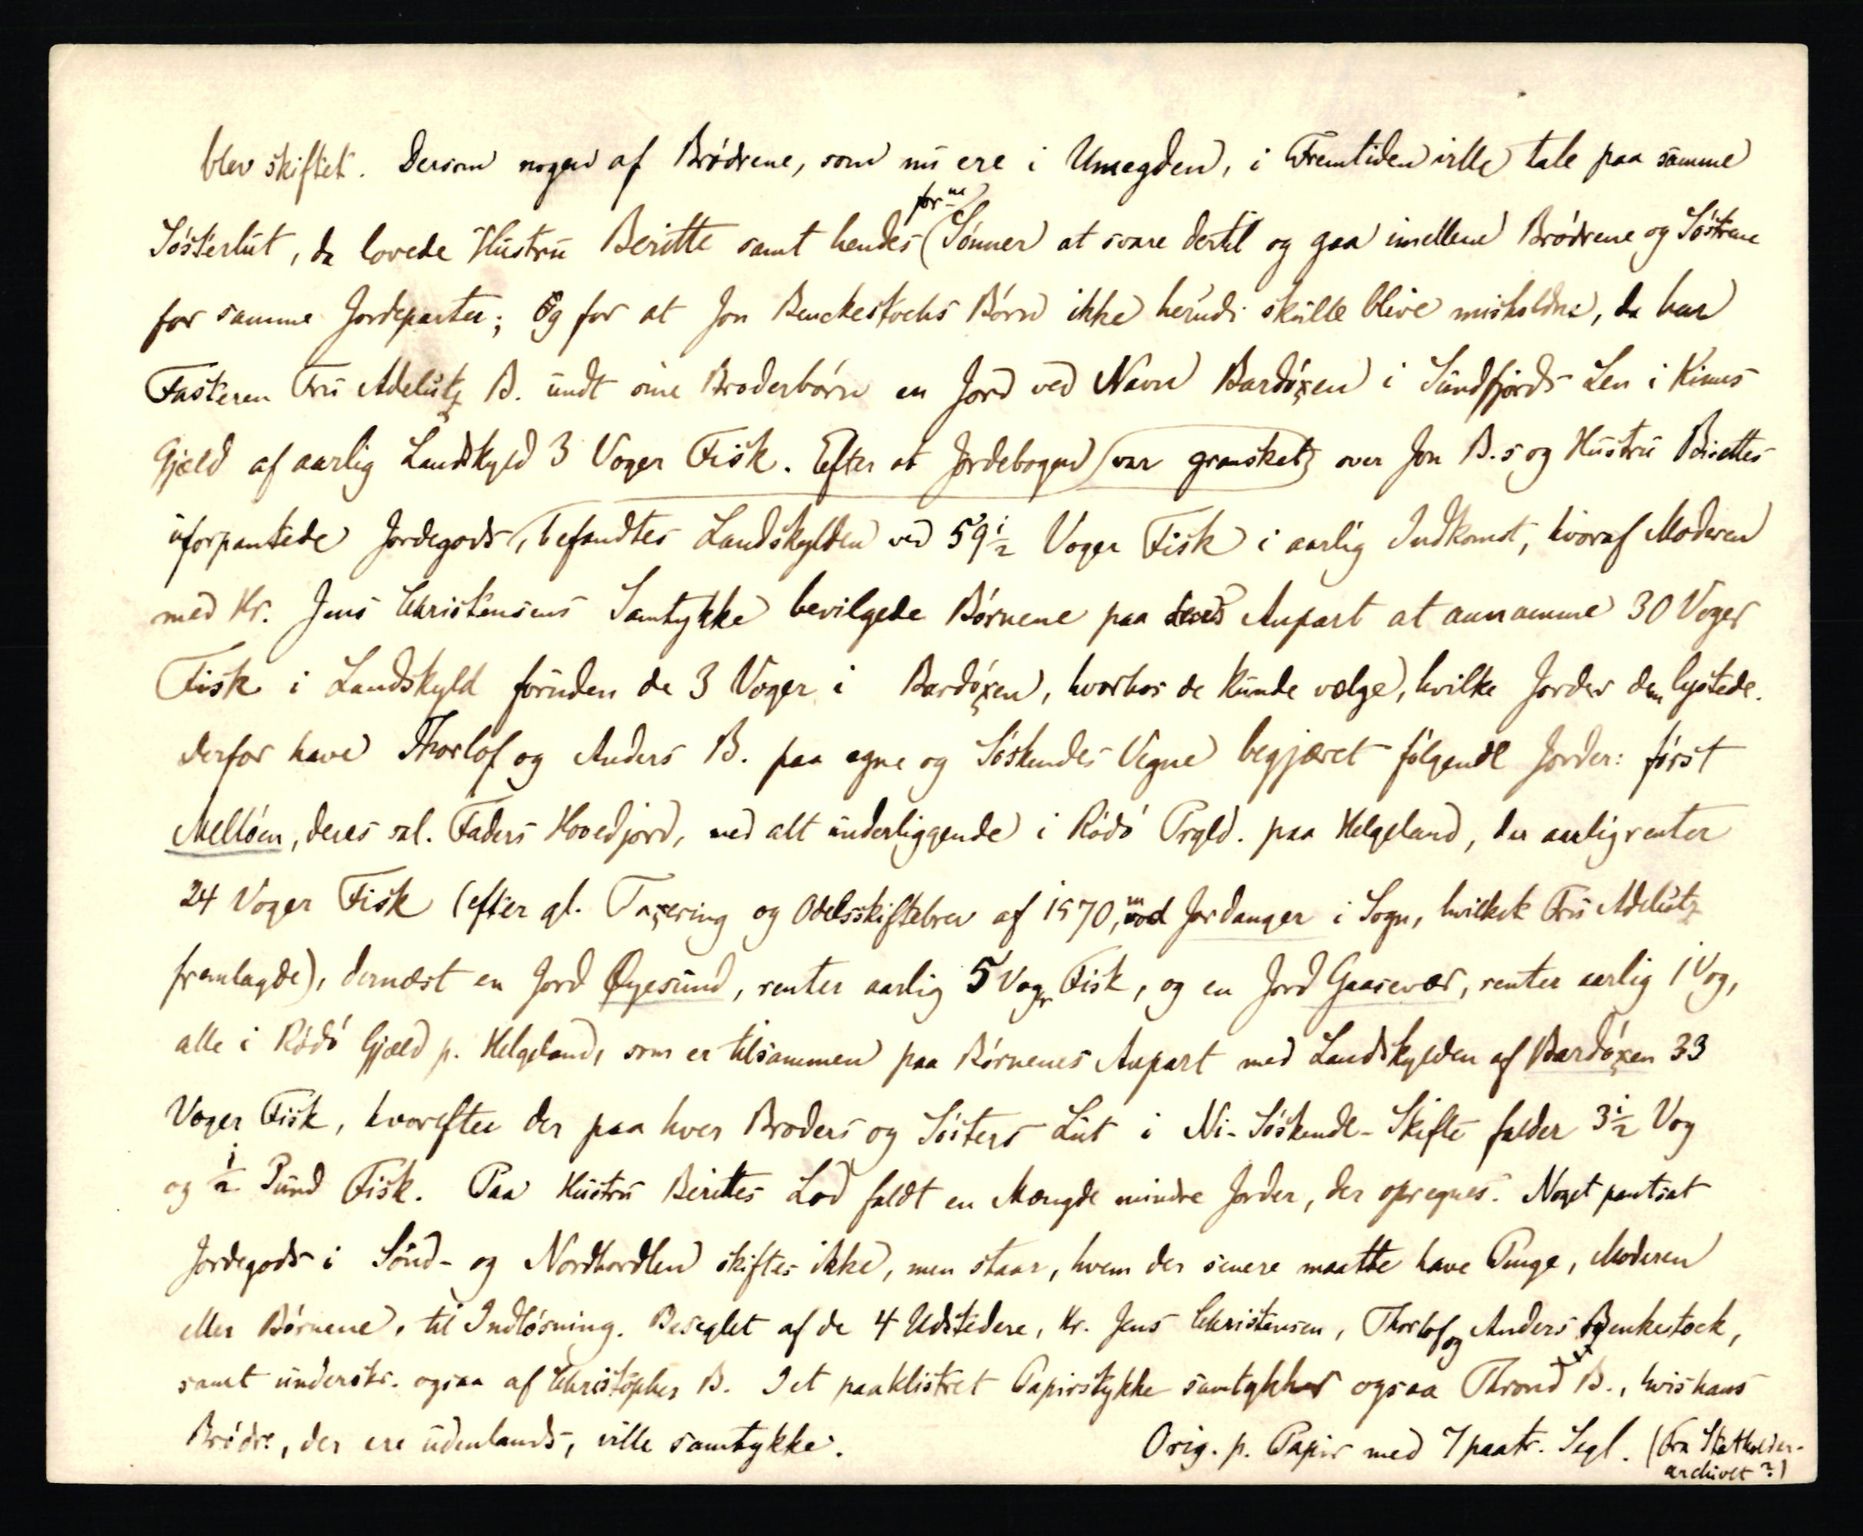 blev skiftet. Dersom nogen af Brødrene, som nu ere i Umegden, i Fremtiden ville tale paa samme
Søsterlut, da lovede Hustru Beritte samt hendes (forne Sønner at svare dertil og gaa imellem Brødrene og Søstrene
for samme Jordeparter; Og for at Jon Benckestochs Børn ikke herudi skulle blive misholdne, da har
Fasteren Fru Adelutz B. undt sine Broderbørn en Jord ved Navn Bardøxen i Sundfjords Len i Kinns
Gjæld af aarlig Landskyld 3 Voger Fisk. Efter at Jordebogen (var gransket) over Jon B.s og Hustru Birettes
uforpantede Jordegods, befandtes Landskylden ved 59½ Voger Fisk i aarlig Indkomst, hvoraf Moderen
med Hr. Jens Christensens Samtykke bevilgede Børnene paa deres Anpart at annamme 30 Voger
Fisk i Landskyld foruden de 3 Voger i Bardøxen, hvorhos de kunde vælge, hvilke Jorder dem lystede.
Derfor have Thorlof og Anders B. paa egne og Søskendes Vegne begjæret følgende Jorder: først
Melløen, deres sal. Faders Hovedjord, med alt underliggende i Rødø Prgld. paa Helgeland, der aarlig renter
24 Voger Fisk (efter gl. Taxering og Odelsskiftebrev af 1570, m Jordanger i Sogn, hvilket Fru Adelutz
fremlagde), dernæst en Jord Øyesund, renter aarlig 5 Vogr Fisk, og en Jord Gaasevær, renter aarlig 1 Vog,
alle i Rødø Gjæld p. Helgeland, som er tilsammen paa Børnenes Anpart med Landskylden af Bardøxen 33
Voger Fisk, hvorefter der paa hver Broders og Søsters Lut i Ni-Søskende-Skifte falder 3½ Vog
og ½ Pund Fisk. Paa Hustru Berittes Lod faldt en Mængde mindre Jorder, der opregnes. Noget pantsat
Jordegods i Sønd- og Nordhordlen skiftes ikke, men staar, hvem der senere maatte have Penge, Moderen
eller Børnene, til Indløsning. Beseglet af de 4 Udstedere, Hr. Jens Christensen, Thorlof og Anders Benkestock,
samt underskr. ogsaa af Christopher B. I et paaklistret Papirstykke samtykker ogsaa Thrond B., hvis hans
Brødre, der ere udenlands, ville samtykke.
Orig. p. Papir med 7 paatr. Segl. (Fra Statholder-
archivet?)